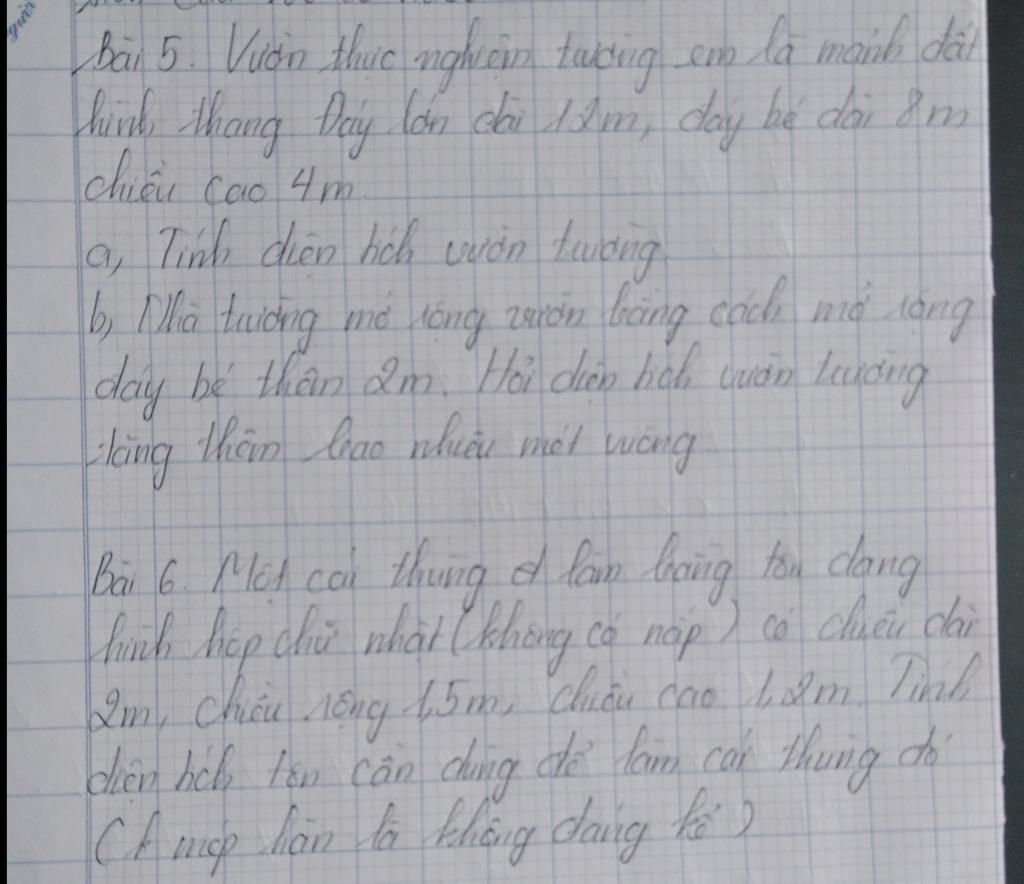 Bài 5. Vườn thực nghiệm trường em là mảnh đất
hình thang Đáy lớn dài 12m, đáy bé dài 8m
chiều cao 4m
a, Tính diện tích vườn trường
b, Nhà trường mở rộng vườn bằng cách mở rộng
đáy bé thêm 2m. Hỏi diện tích vườn trường
tăng thêm bao nhiêu mét vuông
Bài 6. Một cái thùng làm bằng tôn dạng
hình hộp chữ nhật (không có nắp) có chiều dài
2m, chiều rộng 1,5m, chiều cao 1,2m. Tính
diện tích tôn cần dùng để làm cái thùng đó
( mép hàn là không đáng kể )